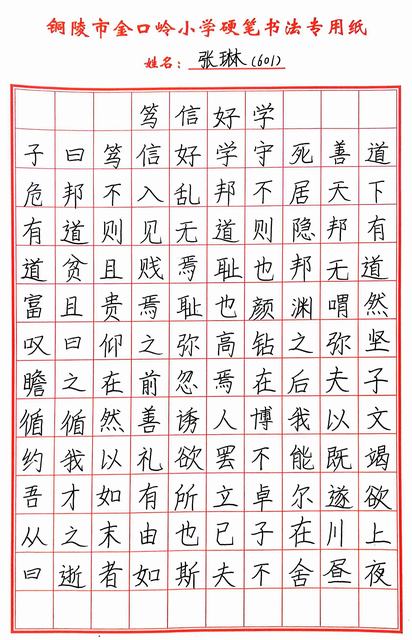 铜陵市金口岭小学硬笔书法专用纸
姓名：张琳(601)
笃信好学
子曰笃信好学守死善道
危邦不入乱邦不居天下
有道则见无道则隐邦有
道贫且贱焉耻也邦无道
富且贵焉耻也颜渊喟然
叹曰仰之弥高钻之弥坚
瞻之在前忽焉在后夫子
循循然善诱人博我以文
约我以礼欲罢不能既竭
吾才如有所立卓尔遂欲
从之末由也已子在川上
曰逝者如斯夫不舍昼夜